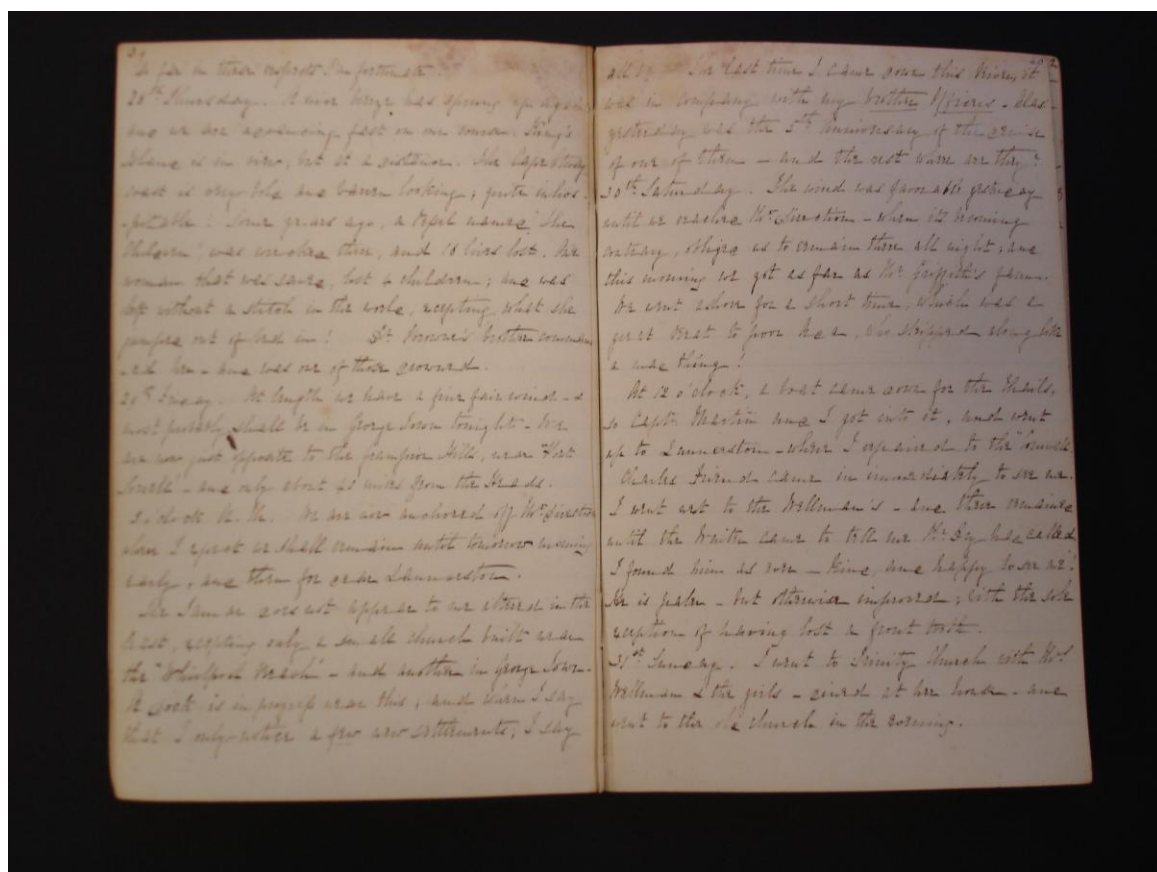 so far in these respects I'm fortunate.
28th Thursday. A nice breeze has sprung up again
and we are advancing fast on our course. King's
Island is in view; but at a distance. The Cape
coast is very bold and barren looking; quite inhos
-pitable! Some years ago, a vessel named "The
Children", was wrecked there, and 18 lives lost. One
woman that was saved, lost 4 children; and was
left without a stitch in the world, excepting what she
jumped out of bed in! Dr Browne's brother command
-ed her - and was one of those drowned.
29th Friday. At length we have a fine fair wind - &
most probably shall be in George Town tonight - We
are now just opposite to the Hills, near "Port
Sorell" - and only about 40 miles from the Heads.
o'clock P. M. We are now anchored off the
where I expect we shall remain until tomorrow morning
early, and then for dear Launceston.
The Tamar does not appear to me altered in the
least, excepting only a small church built near
the "Whirlpool Reach" - and another in George Town.
A dock is in progress near this; and when I say
that I only notice a few new settlements, I say
all. The last time I came down this River, it
was in company with my brother Officers - Alas -
yesterday was the 5th Anniversary of the demise
of one of them - and the rest where are they?
30th Saturday. The wind was favorable yesterday
until we reached the - when its becoming
contrary, obliged us to remain there all night; and
this morning we got as far as Mr Griffith's farm.
We went ashore for a short time, which was a
great treat to poor, who skipped along like
a mad thing!
At 12 o'clock, a boat came down for the Mails,
so Captn Martin and I got into it, and went
up to Launceston - where I repaired to the "Cornwall"
Charles Friend came in immediately to see me.
I went next to the Wellman's - and there remained
until the Waiter came to tell me Mr had called
I found him as ever - kind, and happy to see me!
He is paler - but otherwise improved; with the sole
exception of having lost a front tooth.
31st Sunday. I went to Trinity Church with Mrs
Wellman & the girls - dined at her house - and
went to the old church in the evening.